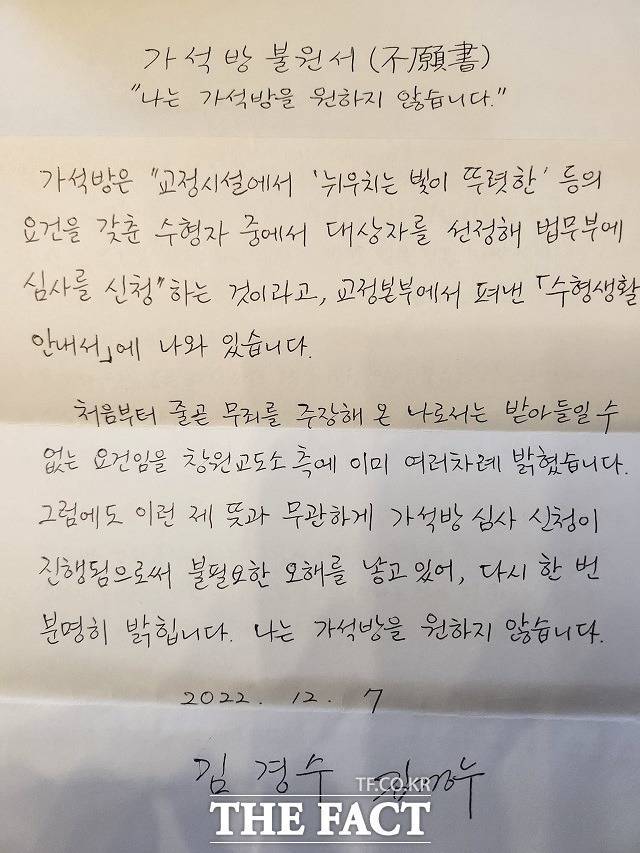 가석방 불원서(不願書)
"나는 가석방을 원하지 않습니다."
가석방은 "교정시설에서 '뉘우치는 빛이 뚜렷한' 등의
요건을 갖춘 수형자 중에서 대상자를 선정해 법무부에
심사를 신청"하는 것이라고, 교정본부에서 펴낸 「수형생활
안내서」에 나와 있습니다.
처음부터 줄곧 무죄를 주장해 온 나로서는 받아들일 수
없는 요건임을 창원교도소 측에 이미 여러차례 밝혔습니다.
그럼에도 이런 제 뜻과 무관하게 가석방 심사 신청이
진행됨으로써 불필요한 오해를 낳고 있어, 다시 한 번
분명히 밝힙니다. 나는 가석방을 원하지 않습니다.
2022. 12. 7
김경수 김경수
TF.CO.KR
THE FACT